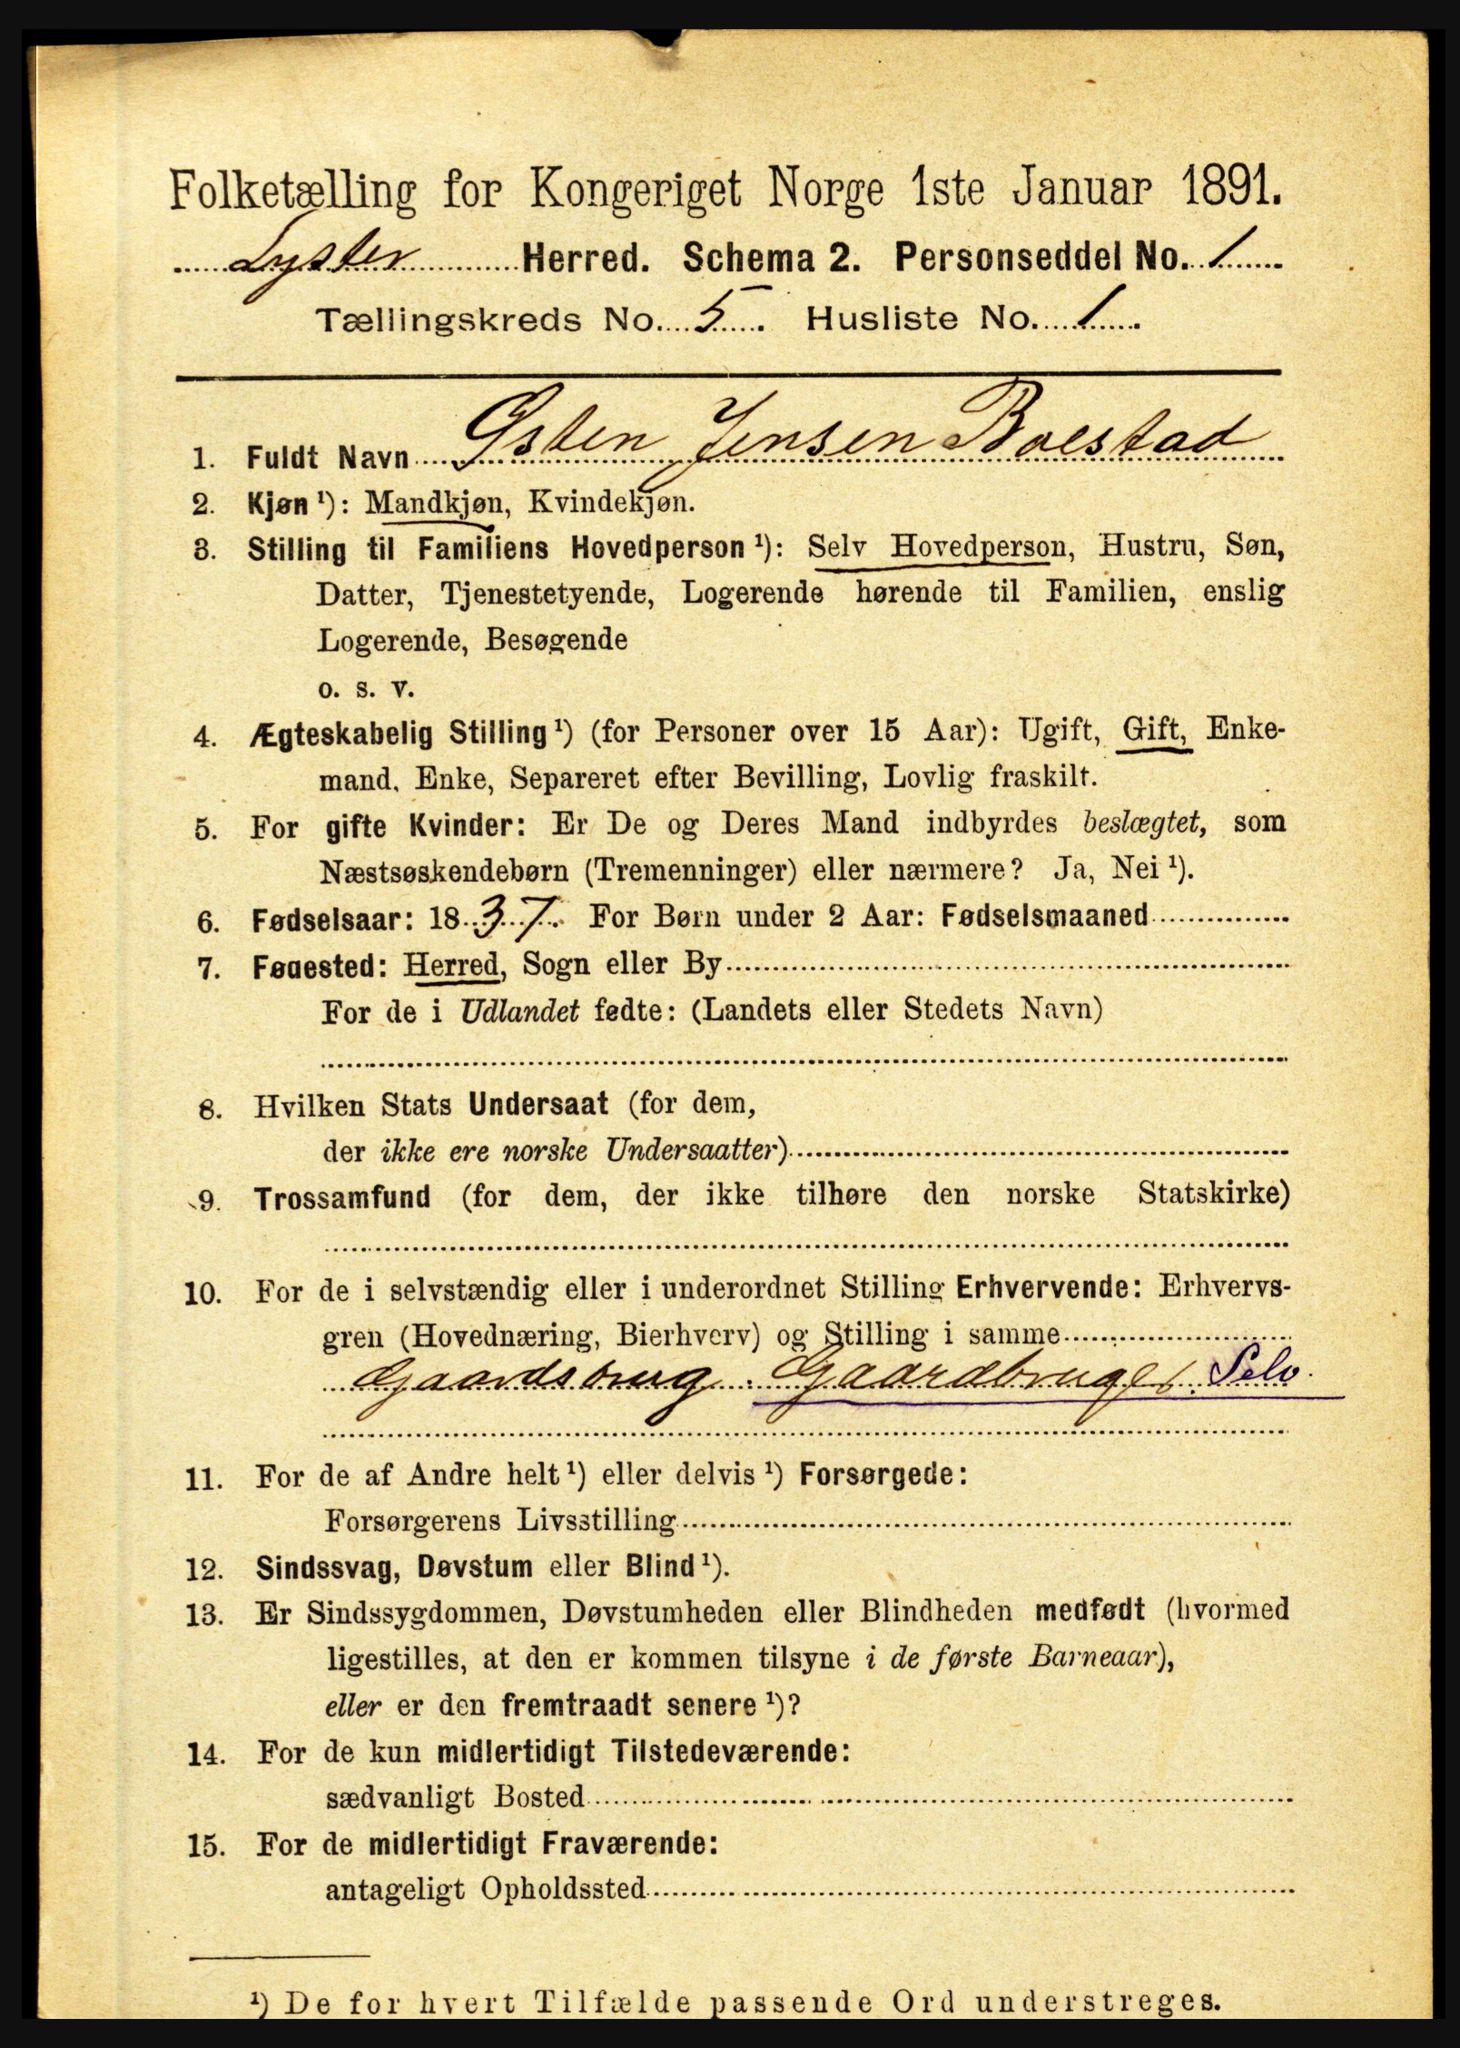 Folketælling for Kongeriget Norge 1ste Januar 1891.
Lyster Herred. Schema 2. Personseddel No. 1
Tællingskreds No. 5. Husliste No. 1.
1. Fuldt Navn Ysten Jensen Bolstad
2. Kjøn ¹): Mandkjøn, Kvindekjøn.
3. Stilling til Familiens Hovedperson ¹): Selv Hovedperson, Hustru, Søn,
Datter, Tjenestetyende, Logerende hørende til Familien, enslig
Logerende, Besøgende
o. s. v.
4. Ægteskabelig Stilling ¹) (for Personer over 15 Aar): Ugift, Gift, Enke-
mand, Enke, Separeret efter Bevilling, Lovlig fraskilt.
5. For gifte Kvinder: Er De og Deres Mand indbyrdes beslægtet, som
Næstsøskendebørn (Tremenninger) eller nærmere? Ja, Nei ¹).
6. Fødselsaar: 1837. For Børn under 2 Aar: Fødselsmaaned
7. Fødested: Herred, Sogn eller By
For de i Udlandet fødte: (Landets eller Stedets Navn)
8. Hvilken Stats Undersaat (for dem,
der ikke ere norske Undersaatter)
9. Trossamfund (for dem, der ikke tilhøre den norske Statskirke)
10. For de i selvstændig eller i underordnet Stilling Erhvervende: Erhvervs-
gren (Hovednæring, Bierhverv) og Stilling i samme
Gaardsbrug. Gaardbruger Selv.
11. For de af Andre helt ¹) eller delvis ¹) Forsørgede:
Forsørgerens Livsstilling
12. Sindssvag, Døvstum eller Blind ¹).
13. Er Sindssygdommen, Døvstumheden eller Blindheden medfødt (hvormed
ligestilles, at den er kommen tilsyne i de første Barneaar),
eller er den fremtraadt senere ¹)?
14. For de kun midlertidigt Tilstedeværende:
sædvanligt Bosted
15. For de midlertidigt Fraværende:
antageligt Opholdssted
¹) De for hvert Tilfælde passende Ord understreges.